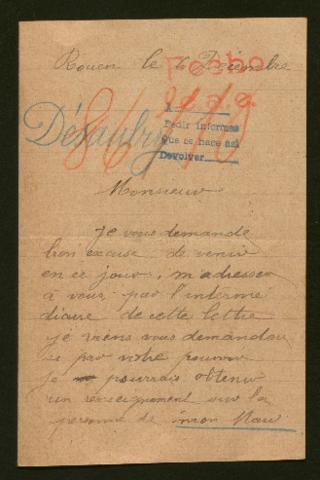 Rouen le 6 Décembre
Fecho
Désaubry
A
Pedir informes
Que se hace así
Devolver
Monsieur
Je vous demande
bien excuse de venir
en ce jour, m'adresser
à vous par l'intermé
diaire de cette lettre
je viens vous demander
si par votre pouvoir
je pourrais obtenir
un renseignement sur la
personne de mon Mari